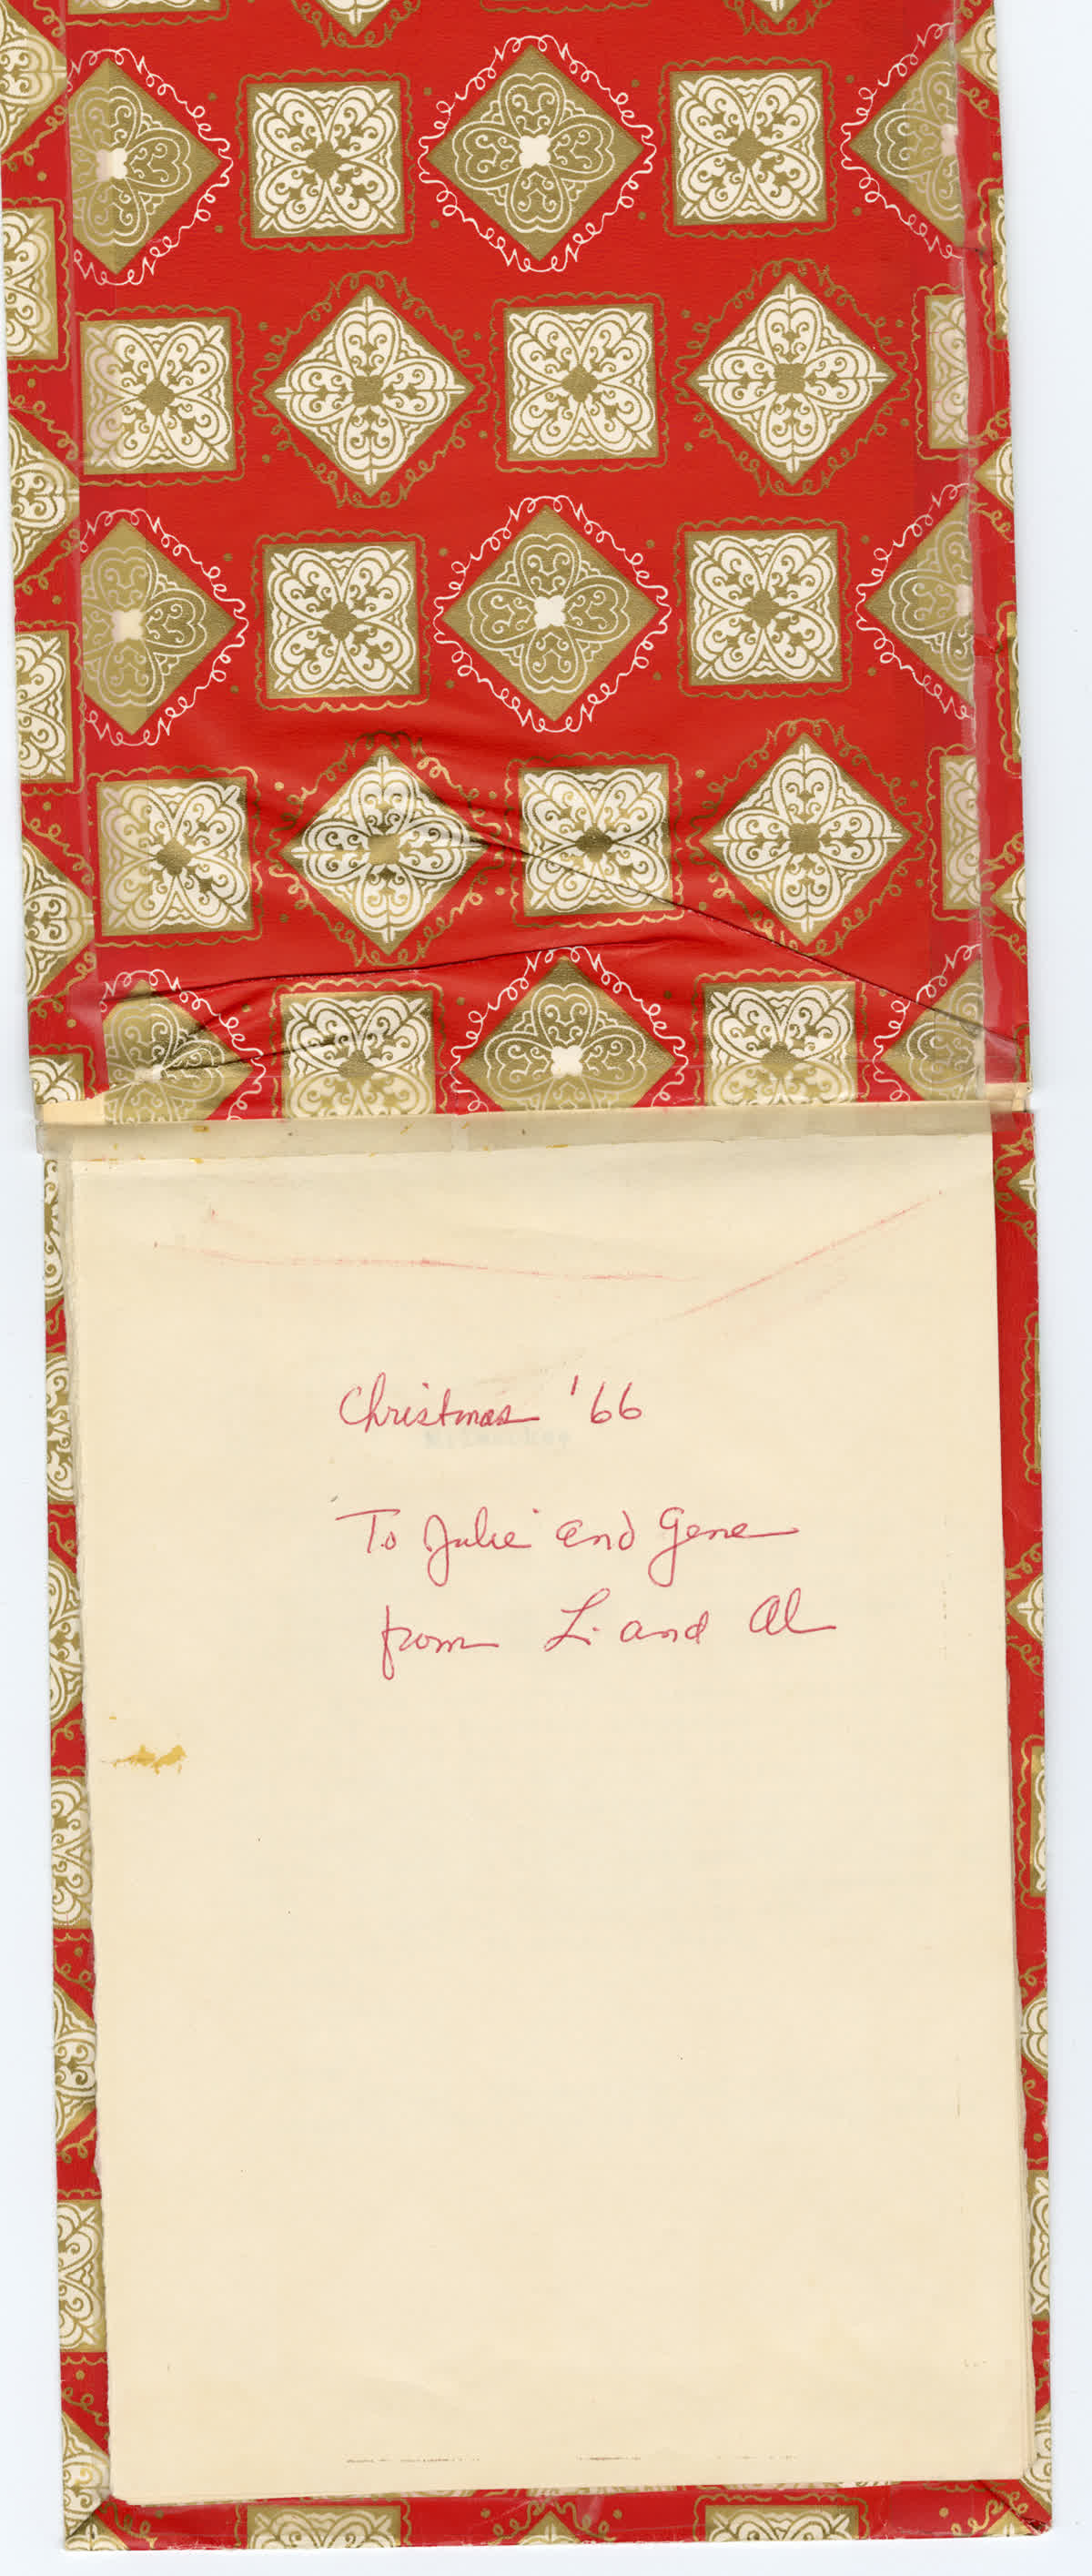 Christmas '66
To Julie and Gene
from L. and Al